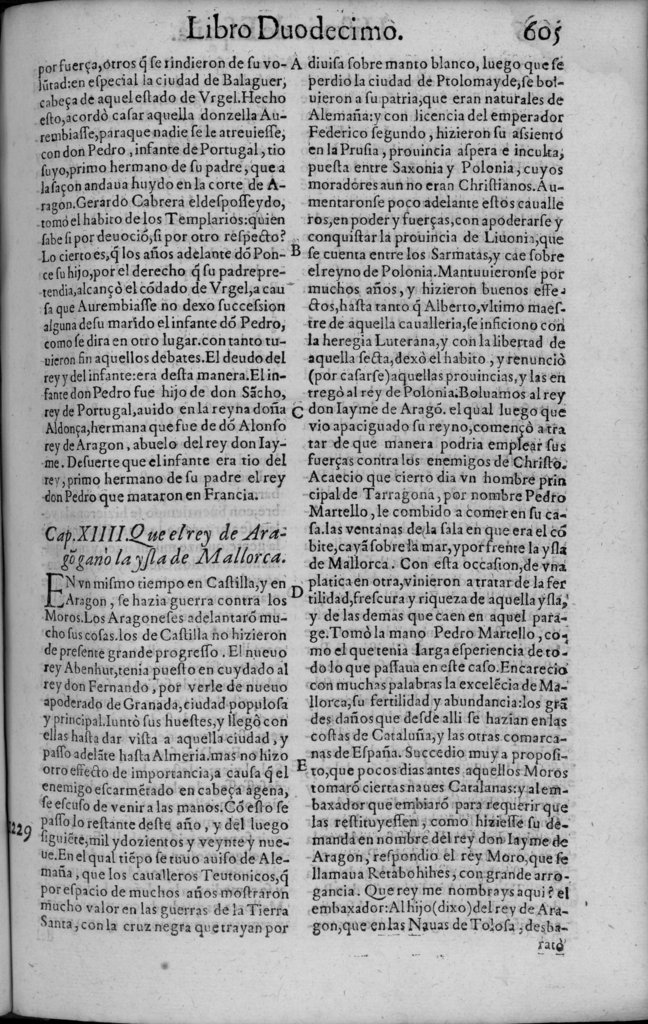 Libro Duodecimo. 605
por fuerça, otros q̃ se rindieron de su vo-
lũtad: en especial la ciudad de Balaguer,
cabeça de aquel estado de Vrgel. Hecho
esto, acordò casar aquella donzella Au-
rembiasse, para que nadie se le atreuiesse,
con don Pedro, infante de Portugal, tio
suyo, primo hermano de su padre, que a
la saçon andaua huydo en la corte de A-
ragon. Gerardo Cabrera el desposseydo,
tomó el habito de los Templarios: quien
sabe si por deuociõ, si por otro respecto?
Lo cierto es, q̃ los años adelante dõ Pon-
ce su hijo, por el derecho q̃ su padre pre-
tendia, alcançò el cõdado de Vrgel, a cau
sa que Aurembiasse no dexo succession
alguna de su marido el infante dõ Pedro,
como se dira en otro lugar. con tanto tu-
uieron fin aquellos debates. El deudo del
rey y del infante: era desta manera. El in-
fante don Pedro fue hijo de don Sãcho,
rey de Portugal, auido en la reyna doña
Aldonça, hermana que fue de dõ Alonso
rey de Aragon, abuelo del rey don Iay-
me. De suerte que el infante era tio del
rey, primo hermano de su padre el rey
don Pedro que mataron en Francia.
Cap. XIIII. Que el rey de Ara-
gõ ganò la ysla de Mallorca.
EN vn mismo tiempo en Castilla, y en
Aragon, se hazia guerra contra los
Moros. Los Aragoneses adelantarõ mu-
cho sus cosas. los de Castilla no hizieron
de presente grande progresso. El nueuo
rey Abenhut, tenia puesto en cuydado al
rey don Fernando, por verle de nueuo
apoderado de Granada, ciudad populosa
y principal. Iuntò sus huestes, y llegò con
ellas hasta dar vista a aquella ciudad, y
passo adelãte hasta Almeria. mas no hizo
otro effecto de importancia, a causa q̃ el
enemigo escarmẽtado en cabeça agena,
se escuso de venir a las manos. Cõ esto se
passo lo restante deste año, y del luego
1229
siguiẽte, mil y dozientos y veynte y nue-
ue. En el qual tiẽpo se tuuo auiso de Ale-
maña, que los caualleros Teutonicos, q̃
por espacio de muchos años mostraron
mucho valor en las guerras de la Tierra
Santa, con la cruz negra que trayan por
A
B
C
D
E
diuisa sobre manto blanco, luego que se
perdio la ciudad de Ptolomayde, se bol-
uieron a su patria, que eran naturales de
Alemaña: y con licencia del emperador
Federico segundo, hizieron su assiento
en la Prusia, prouincia aspera e inculta,
puesta entre Saxonia y Polonia, cuyos
moradores aun no eran Christianos. Au-
mentaronse poco adelante estos caualle
ros, en poder y fuerças, con apoderarse y
conquistar la prouincia de Liuonia, que
se cuenta entre los Sarmatas, y cae sobre
el reyno de Polonia. Mantuuieronse por
muchos años, y hizieron buenos effe-
ctos, hasta tanto q̃ Alberto, vltimo maes-
tre de aquella caualleria, se inficiono con
la heregia Luterana, y con la libertad de
aquella secta, dexò el habito, y renunciò
(por casarse) aquellas prouincias, y las en
tregò al rey de Polonia. Boluamos al rey
don Iayme de Aragõ. el qual luego que
vio apaciguado su reyno, començò a tra
tar de que manera podria emplear sus
fuerças contra los enemigos de Christo.
Acaecio que cierto dia vn hombre prin
cipal de Tarragona, por nombre Pedro
Martello, le combido a comer en su ca-
sa. las ventanas de la sala en que era el cõ
bite, cayã sobre la mar, y por frente la ysla
de Mallorca. Con esta occasion, de vna
platica en otra, vinieron a tratar de la fer
tilidad, frescura y riqueza de aquella ysla,
y de las demas que caen en aquel para-
ge. Tomò la mano Pedro Martello, co-
mo el que tenia larga esperiencia de to-
do lo que passaua en este caso. Encarecio
con muchas palabras la excelẽcia de Ma-
llorca, su fertilidad y abundancia: los grã
des daños que desde alli se hazian en las
costas de Cataluña, y las otras comarca-
nas de España. Succedio muy a proposi-
to, que pocos dias antes aquellos Moros
tomarõ ciertas naues Catalanas: y al em-
baxador que embiarõ para requerir que
las restituyessen, como hiziesse su de-
manda en nombre del rey don Iayme de
Aragon, respondio el rey Moro, que se
llamaua Retabohihes, con grande arro-
gancia. Que rey me nombrays aqui? el
embaxador: Al hijo (dixo) del rey de Ara-
gon, que en las Nauas de Tolosa, desba-
ratò